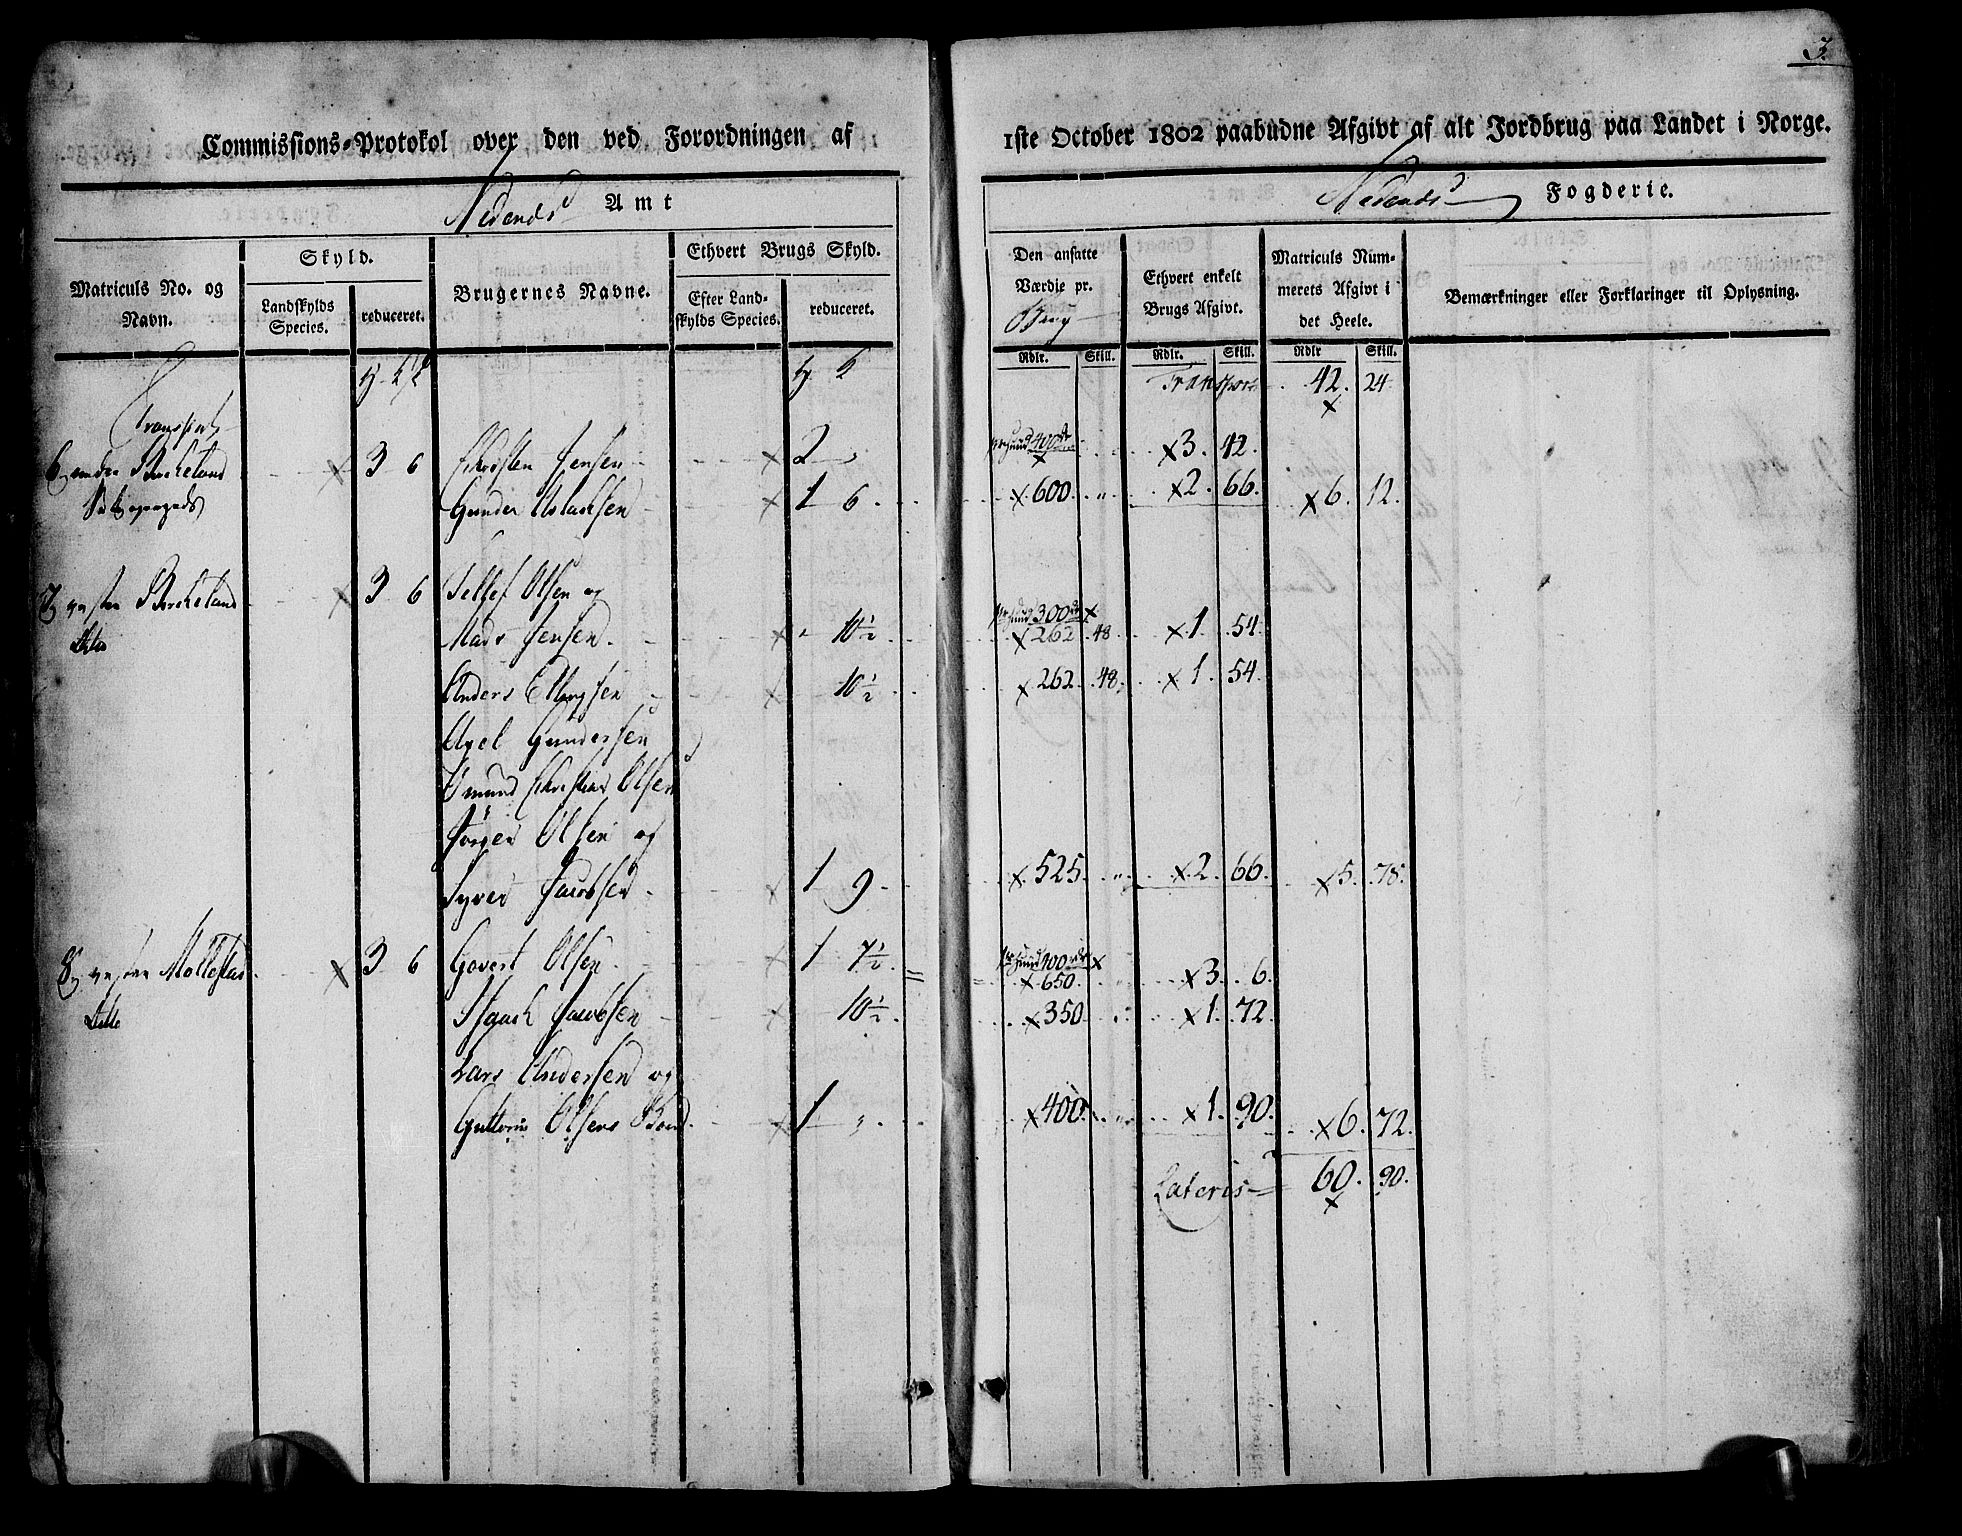 3.
Commissions-Protokol over den ved Forordningen af 1ste October 1802 paabudne Afgivt af alt Jordbrug paa Landet i Norge.
Nedends Amt
Nedends Fogderie.
Matriculs No. og Navn.
Skyld.
Landskylds Species.
reduceret.
Brugernes Navne.
Ethvert Brugs Skyld.
Efter Landskylds Species.
reduceret.
Den ansatte Værdie pr. Brug
Ethvert enkelt Brugs Afgivt.
Matriculs Nummerets Afgivt i det Heele.
Bemærkninger eller Forklaringer til Oplysning.
Rdlr. Skill. Rdlr. Skill. Rdlr Skill.
Transport Transport 42. 24
6, Berkeland x 3 6 Christen Jensen x 2 „ pr hund 400 x 3. 42.
Gunder Aslachsen x 1 6 x 600 „ x 2. 66. x 6. 12.
7, Berkeland x 3 6 Tellef Olsen og
Mads Jensen x „ 10½ pr hund 300 x x 262 48 x 1. 54.
Anders x 10½ x 262 48 x 1. 54.
Axel Gundersen
Omund Christian Olsen
Jörgen Olsen og
Syver Jacobsen x 1 9 x 525 „ x 2. 66. x 5. 78.
8, Mollestad x 3 6 Govert Olsen x 1 7½ pr hund 400 x x 650 „ x 3. 6.
Isaach Jacobsen x 10½ x 350 „ x 1. 72.
Lars Andersen og
Guttorm Olsen x 1 „ x 400 „ x 1. 90. x 6. 72.
Lateris 60. 90.
x